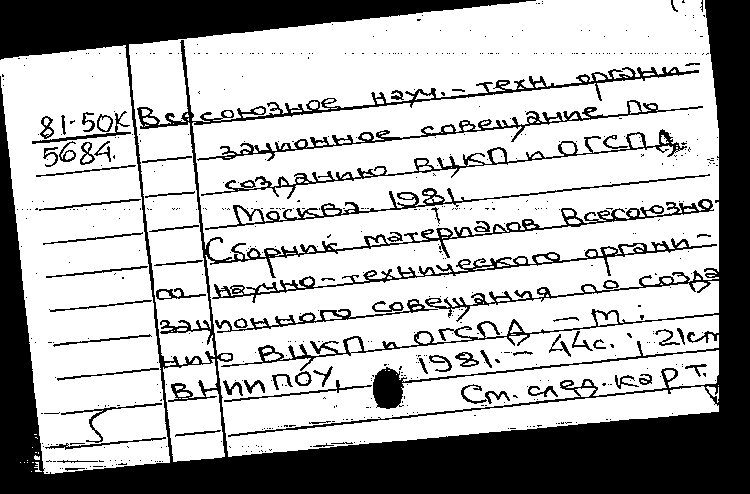 81-50К Всесоюзное науч.-техн. органи-
5684. зационное совещание по
созданию ВЦКП и ОГСПД.
Москва. 1981.
Сборник материалов Всесоюзно-
го научно-технического органи-
зационного совещания по созда
нию ВЦКП и ОГСПД. - М.:
ВНИИПОУ, 1981. - 44с.; 21см
См. след. карт.
5